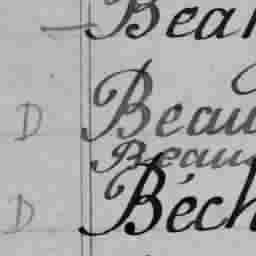 Bea
D Beau
Beau
D Béch